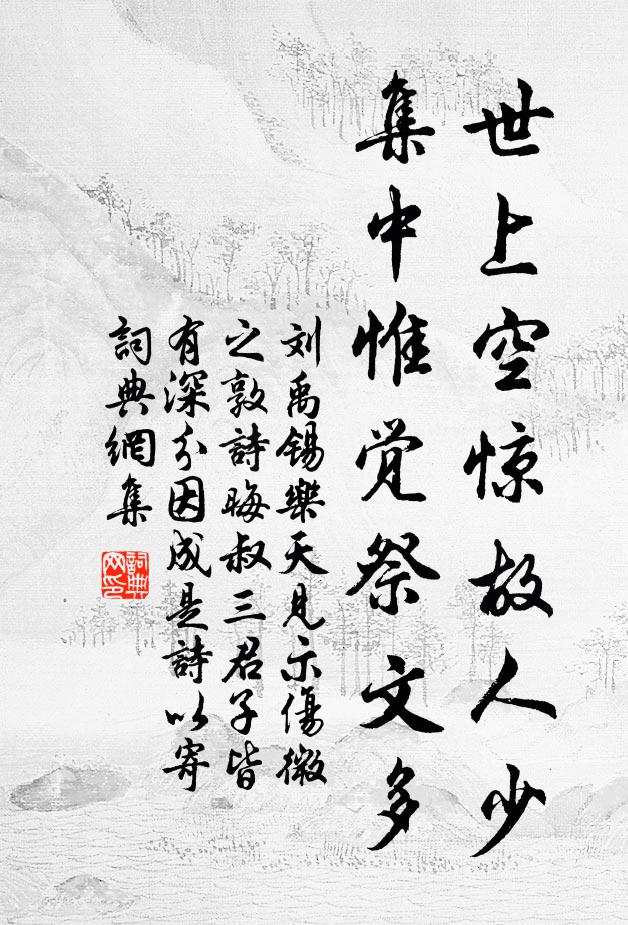 世上空惊故人少
集中惟觉祭文多
刘禹锡樂天見示傷微
之敦詩晦叔三君子皆
有深分因成是詩以寄
詞典網集
詞典
网印